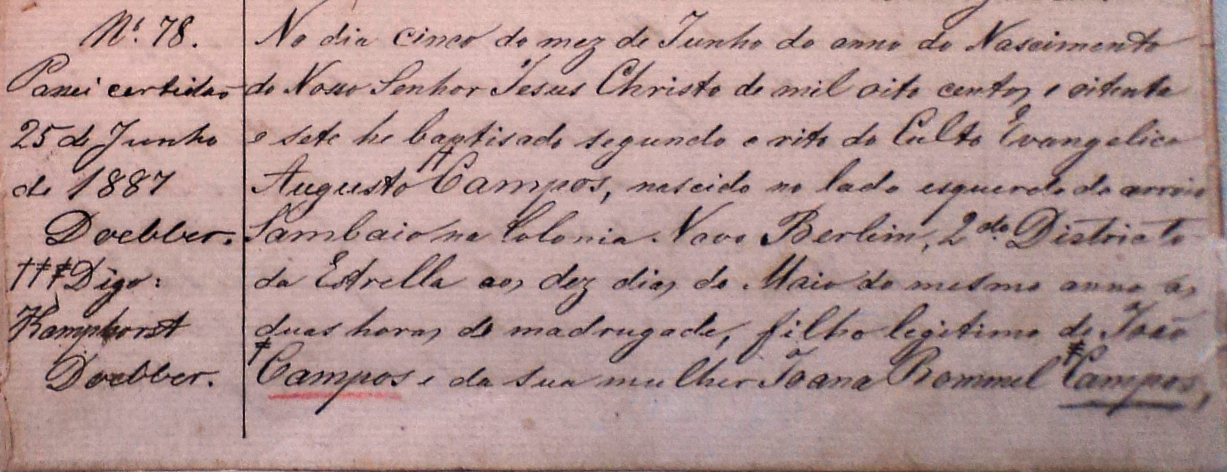 Nº. 78.
Passei certidão
25 de Junho
de 1887
Doebber.
‡‡‡ Digo:
Kamphorst
Doebber.
No dia cinco do mez de Junho do anno do Nascimento
de Nosso Senhor Jesus Christo de mil oito centos e oitenta
e sete he baptisado segundo o rito do Culto Evangelico
Augusto ‡Campos, nascido no lado esquerdo do arroio
Sambaio na Colonia Novo Berlim, 2do Districto
da Estrella aos dez dias do Maio do mesmo anno as
duas horas de madrugade, filho legitimo de João
‡Campos e da sua mulher Joana Rommel ‡Campos,